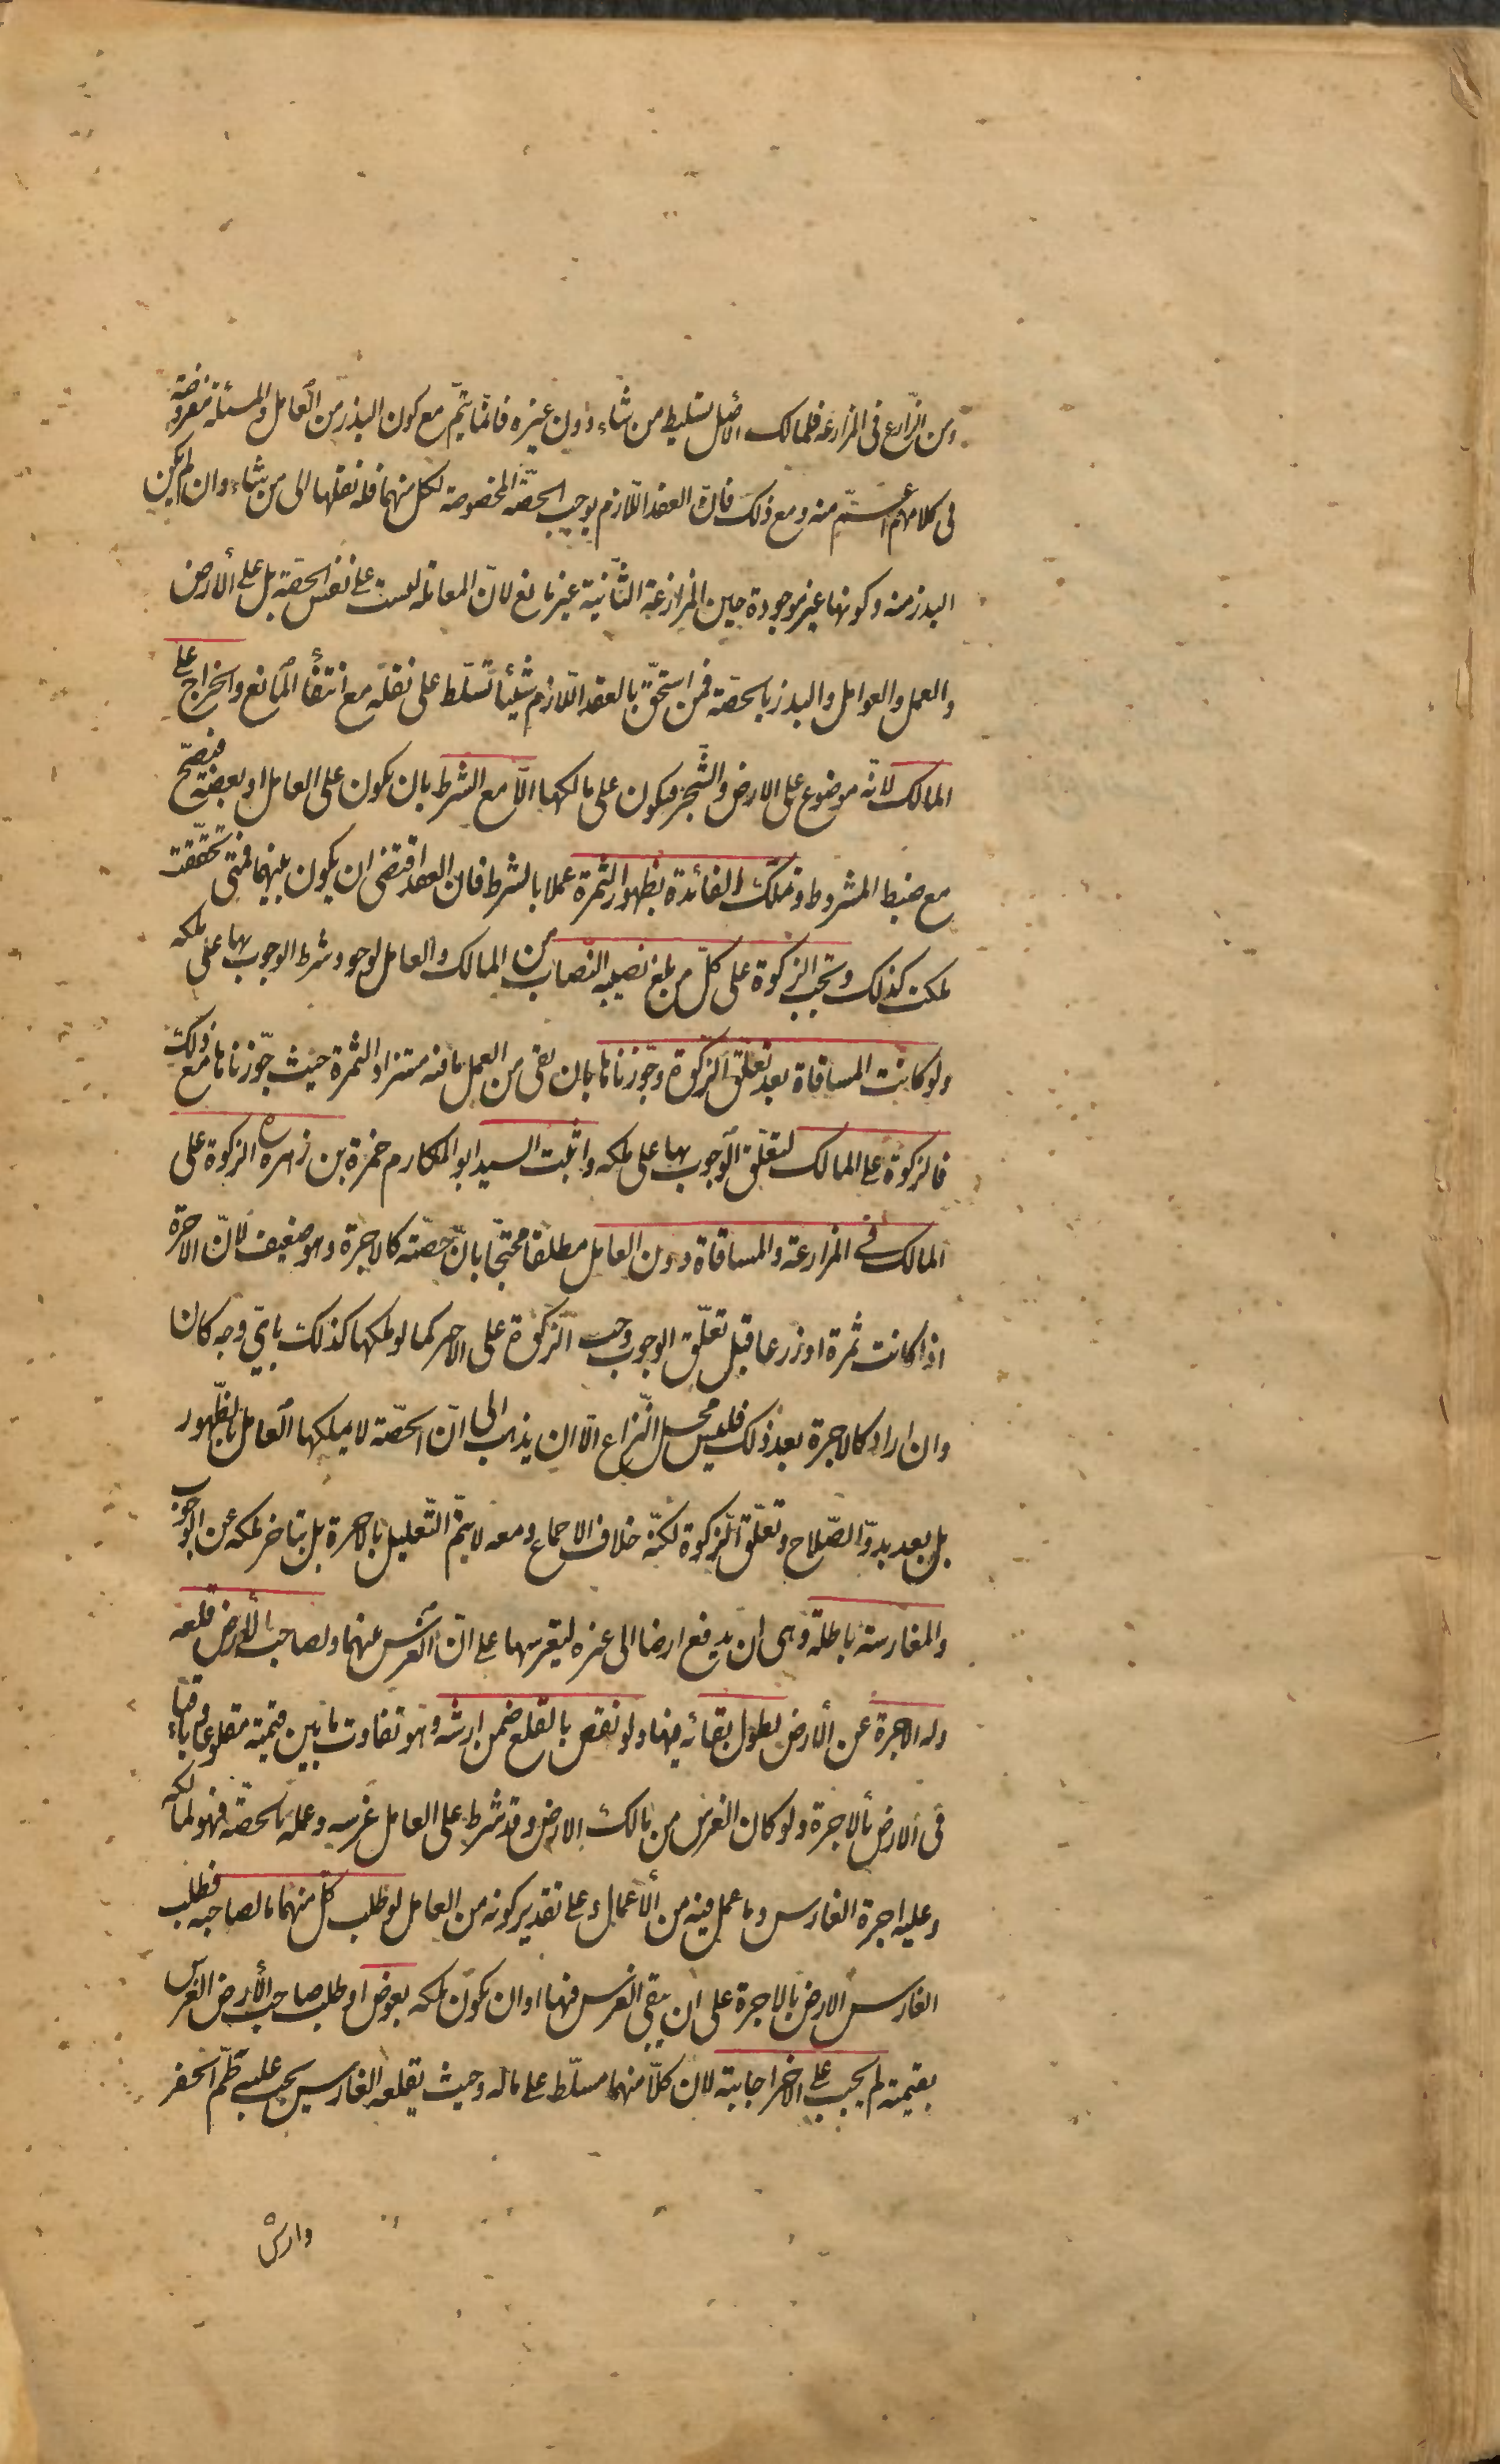 ومن الزارع فى المزارعة فللمالك الاصل تسليط من شاء دون غيره فانما يتم مع كون البذر من العامل والمسئلة مفروضة
فى كلامهم اعم منه ومع ذلك فان العقد اللازم يوجب الحصة المخصوصة لكل منهما فله نقلها الى من شاء وان لم يكن
البذر منه وكونها غير موجودة حين المزارعة الثانية غير مانع لان المعاملة ليست على نفس الحصة بل على الارض
والعمل والعوامل والبذر بالحصة فمن استحق بالعقد اللازم شيئا تسلط على نقله مع انتفاء المانع والخراج على
المالك لانه موضوع على الارض والشجر فيكون على مالكهما الا مع الشرط بان يكون على العامل او بعضه فيصح
مع ضبط المشروط وتملك الفائدة بظهور الثمرة عملا بالشرط فان العقد اقتضى ان يكون بينهما فمتى تحققت
ملكت كذلك وتجب الزكوة على كل من بلغ نصيبه النصاب من المالك والعامل لوجود شرط الوجوب بها على ملكه
ولو كانت المساقاة بعد تعلق الزكوة وجوزناها بان بقى من العمل ما فيه مستزاد الثمرة حيث جوزناها مع ذلك
فالزكوة على المالك لتعلق الوجوب بها على ملكه واثبت السيد ابو المكارم حمزة بن زهره ره الزكوة على
المالك فى المزارعة والمساقاة دون العامل مطلقا محتجا بان حصته كالاجرة وهو ضعيف لان الاجرة
اذا كانت ثمرة او زرعا قبل تعلق الوجوب وجبت الزكوة على الاجير كما لو ملكها كذلك باى وجه كان
وان اراد كالاجرة بعد ذلك فليس محل النزاع الا ان يذهب الى ان الحصة لا يملكها العامل بالظهور
بل بعد بدو الصلاح وتعلق الزكوة لكنه خلاف الاجماع ومعه لا يتم التعليل بالاجرة بل بتاخر ملكه عن الوجوب
والمغارسة باطلة وهى ان يدفع ارضا الى غيره ليغرسها على ان الغرس بينهما ولصاحب الارض قلعه
وله الاجرة عن الارض لطول بقائه فيها ولو نقص بالقلع ضمن ارشه وهو تفاوت ما بين قيمته مقلوعا وباقيا
فى الارض بالاجرة ولو كان الغرس من مالك الارض وقد شرط على العامل غرسه وعمله بالحصة فهو لمالكه
وعليه اجرة الغارس وما عمل فيه من الاعمال وعلى تقدير كونه من العامل لو طلب كل منهما ما لصاحبه فطلب
الغارس الارض بالاجرة على ان يبقى الغرس فيها او ان يكون ملكه بعوض او طلب صاحب الارض الغرس
بقيمته لم يجب على الاخر اجابته لان كلا منهما مسلط على ماله وحيث يقلعه الغارس يجب عليه طم الحفر
وارش